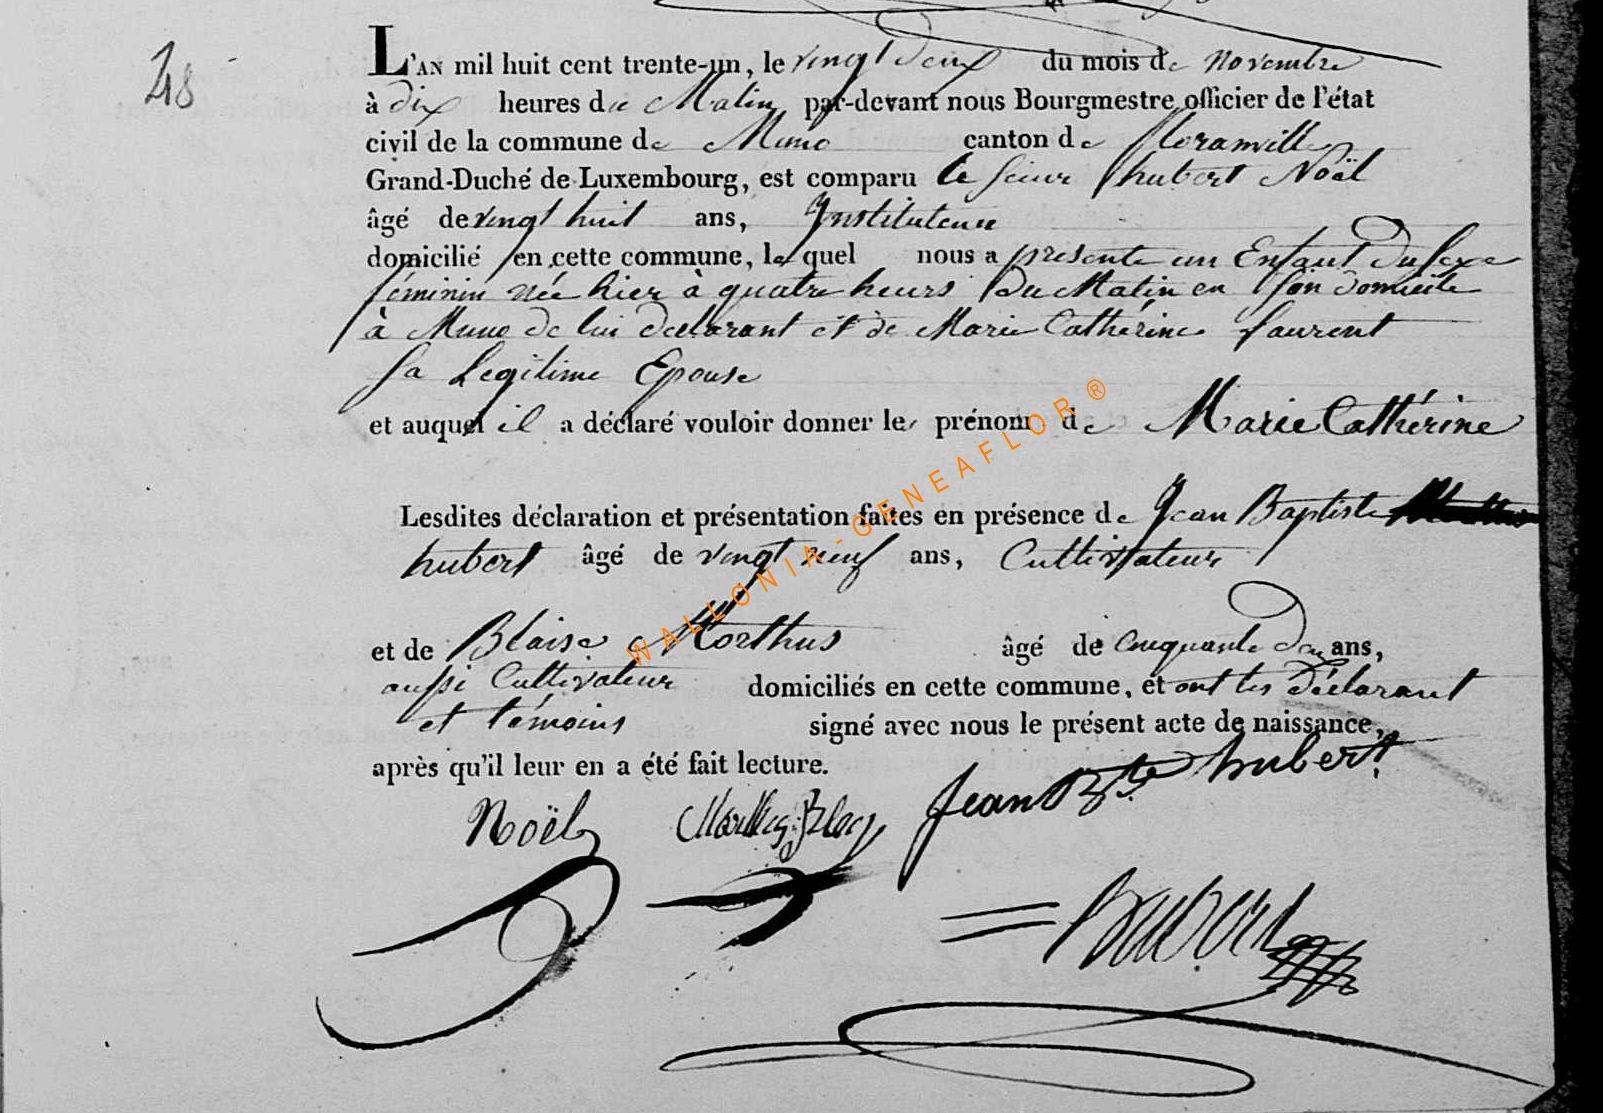 48
L'AN mil huit cent trente-un, le vingt deux du mois de novembre
à dix heures du Matin par-devant nous Bourgmestre officier de l'état
civil de la commune de Muno canton de floranville
Grand-Duché de Luxembourg, est comparu le sieur hubert Noël
âgé de vingt huit ans, Instituteur
domicilié en cette commune, lequel nous a présenté un Enfant du sexe
féminin née hier à quatre heurs du Matin en son domicile
à Muno de lui declarant et de Marie Cathérine laurent
sa Legitime Epouse
et auquel il a déclaré vouloir donner les prénom de Marie Cathérine
Lesdites déclaration et présentation faites en présence de Jean Baptiste
hubert âgé de vingt neuf ans, Cultivateur
et de Blaise Morthus âgé de cinquante deux ans,
aussi Cultivateur domiciliés en cette commune, et ont les Déclarant
et témoins signé avec nous le présent acte de naissance,
après qu'il leur en a été fait lecture.
Noël Jean Bte hubert
WALLONIA-GENEAFLOR®